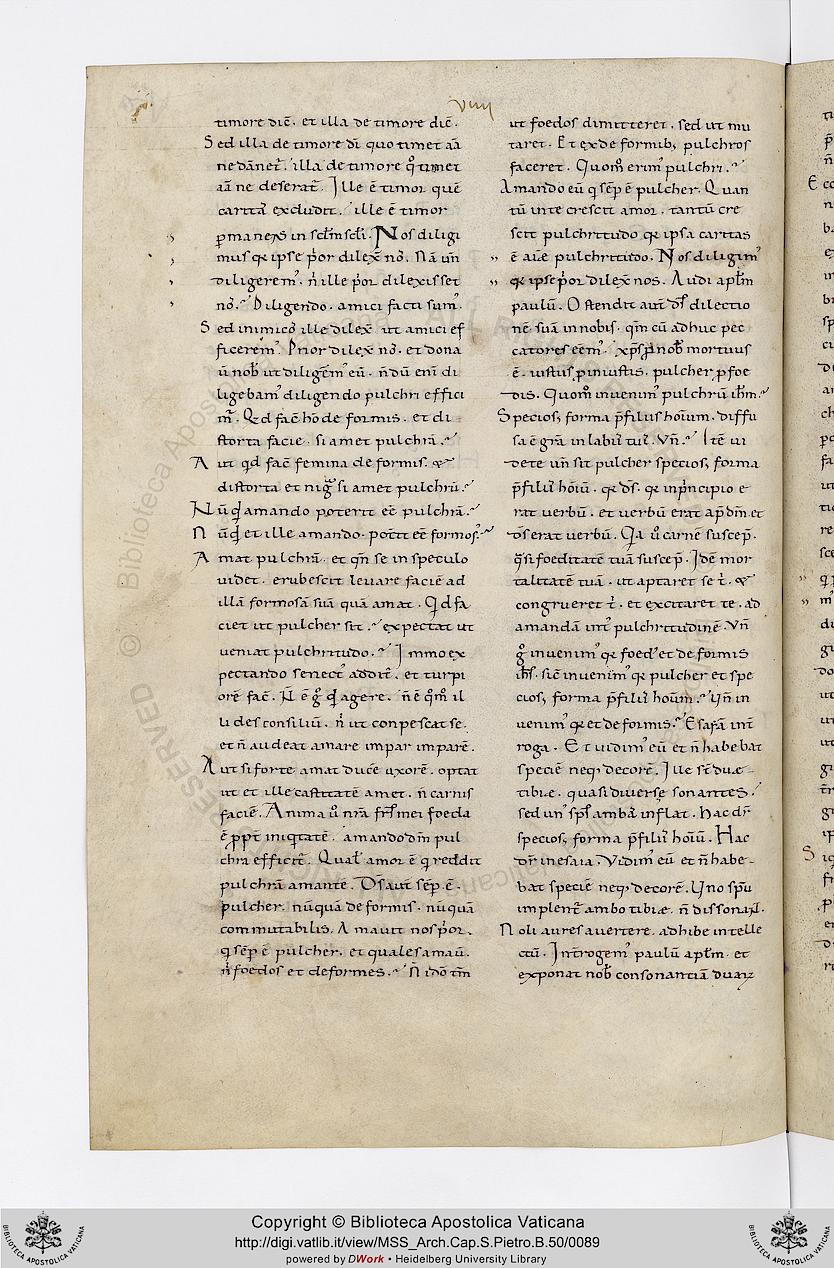 viiii
timore dic̄. et illa de timore dic̄.
Sed illa de timore dī quo timet aīa
ne dānet̄. illa de timore q̊ timet
aīa ne deserat̄. Ille ē timor quē
caritas excludit. ille ē timor
p̄manens in sclm̄ scli. Nos diligi
mus q̄ ipse prior dilex̄ nos. Nā un̄
diligerem'. n̄ ille prior dilexisset
nos. Diligendo. amici facti sum'.
Sed inimicos ille dilex̄ ut amici ef
ficerem'. Prior dilex̄ nos. et dona
ū nob̄ ut diligem' eū. n̄ dū eni di
ligebam' diligendo pulchri effici
m̄. Qd fac̄ hō de formis. et di
storta facie. si amet pulchrā.
Aut qd fac̄ femina de formis. &
distorta et niḡ si amet pulchrū.
Nū qd amando poterit eē pulchrā.
Nū qd et ille amando. potit eē formos'.
Amat pulchrā. et qn̄ se in speculo
videt. erubescit levare faciē ad
illā formosā suā quā amat. Qd fa
ciet ut pulcher sit. expectat ut
veniat pulchritudo. Immo ex
pectando senect' addit̄. et turpi
orē fac̄. N̄ ē g̊ qd agere. n̄ ē qm̊ il
li des consiliū. n̄ ut conpescat se.
et n̄ audeat amare impar imparē.
Aut si forte amat ducē uxorē. optat
ut et ille castitatē amet. n̄ carnis
faciē. Anima ū nr̄a frs̄ mei foeda
ē ꝓpt̄ iniqtatē. amando dm̄ pul
chra efficit̄. Qual' amor ē q reddit
pulchrā amantē. Ds̄ aut̄ sēp ē.
pulcher. nūquā de formis. nūquā
commutabilis. Amavit nos prior.
q sēp ē pulcher. et quales amav̄.
n̄ foedos et deformes. N̄ idō tm̄
ut foedos dimitteret. sed ut mu
taret. Et ex de formib; pulchros
faceret. Quom̊ erim' pulchri.
Amando eū q sēp ē pulcher. Quan
tū in te crescit amor. tantū cre
scit pulchritudo q̄ ipsa caritas
ē aīe pulchritudo. Nos diligim'
q̄ ipse prior dilex̄ nos. Audi aplm̄
paulū. Ostendit aut̄ ds̄ dilectio
nē suā in nobis. qm̄ cū adhuc pec
catores eēm'. xp̄s ꝓ nob̄ mortuus
ē. iustus ꝓ iniustis. pulcher ꝓ foe
dis. Quom̊ invenim' pulchrū ihm̄.
Specios; forma p̄ filius hoīum. diffu
sa ē grā in labiis tuis. Vn̄. Itē vi
dete un̄ sit pulcher specios; forma
p̄ filiis hoiū. q̄ ds̄. q̄ in principio e
rat verbū. et verbū erat ap̄ dm̄. et
ds̄ erat verbū. Qa ū carnē suscep̄.
q̄si foeditatē tuā suscep̄. Idē mor
talitatē tuā. ut aptaret se t̄. &
congrueret t̄. et excitaret te. ad
amandā int' pulchritudinē. Vn̄
g̊ invenim' q̄ foed' et de formis
ihs̄. sic̄ invenim' q̄ pulcher et spe
cios; forma p̄ filiis hoiūm. Vn̄ in
venim' q̄ et de formis. Esaīā int̄
roga. Et vidim' eū et n̄ habebat
speciē neq; decorē. Ille st̄ duę
tibię. quasi diverse sonantes.
sed un' sps̄ ambas inflat. Hac dr̄
specios; forma p̄ filiis hoiū. Hac
dr̄ in esaia. Vidim' eū et n̄ habe-
bat speciē neq; decorē. Uno spū
implent̄ ambo tibię. n̄ dissonant.
Noli aures avertere. adhibe intelle
ctū. Introgem' paulū aplm̄. et
exponat nob̄ consonantiā duaꝝ
Copyright © Biblioteca Apostolica Vaticana
http://digi.vatlib.it/view/MSS_Arch.Cap.S.Pietro.B.50/0089
powered by DWork • Heidelberg University Library